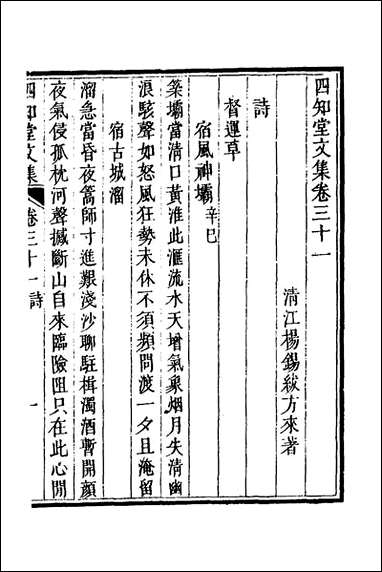 四知堂文集卷三十一
清江楊錫紱方來著
詩
督運草
宿風神壩辛巳
築壩當清口黃淮此滙流水天增氣象烟月失清幽
浪駭聲如怒風狂勢未休不須頻問渡一夕且淹留
宿古城溜
溜急當昏夜篙師寸進艱淺沙聊駐楫濁酒暫開顏
夜氣侵孤枕河聲撼斷山自來臨險阻只在此心閒
四知堂文集
卷三十一詩
一